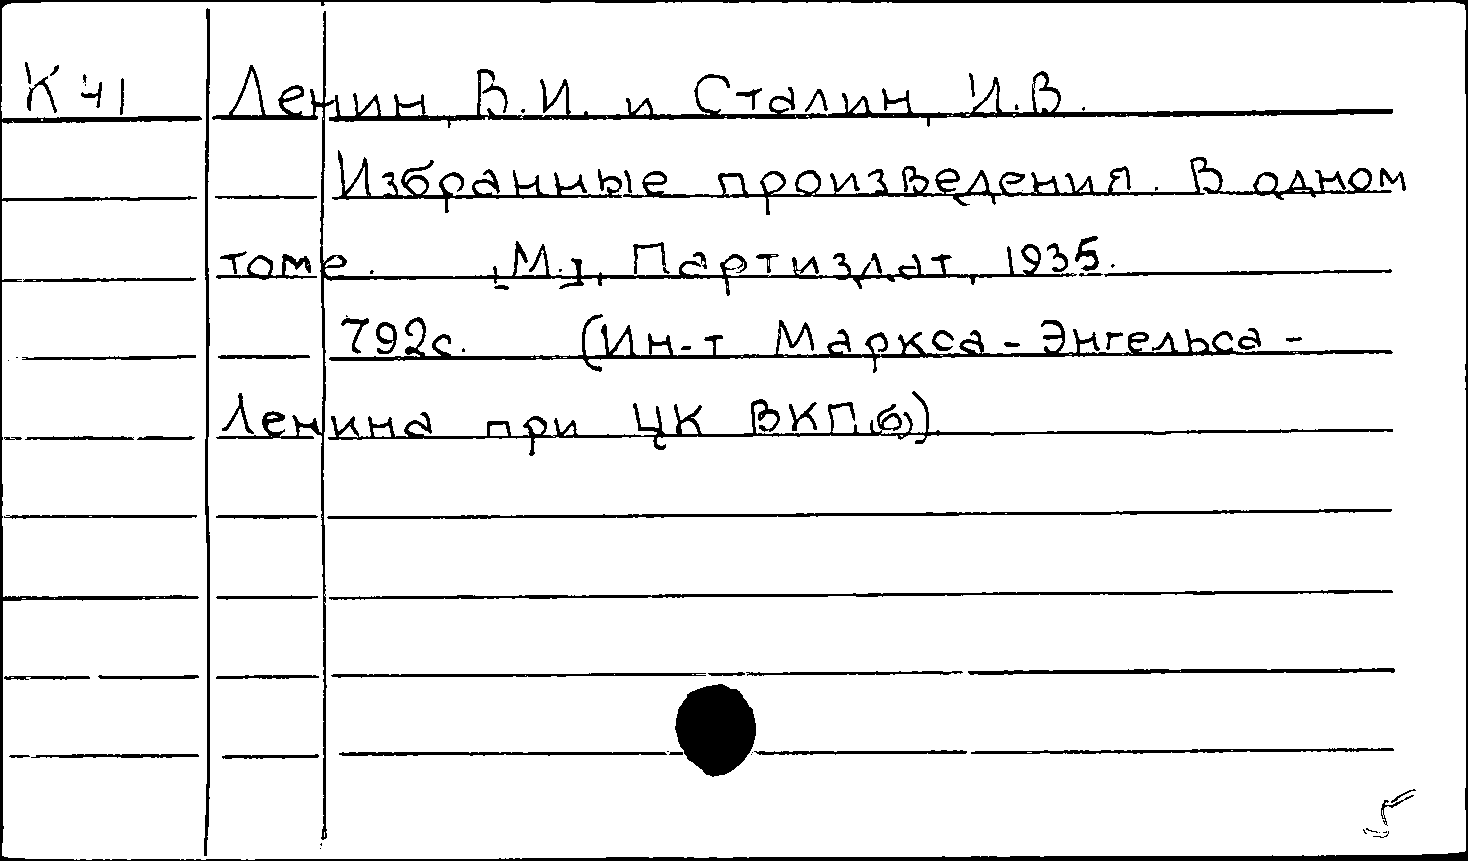 К 41 Ленин, В.И. и Сталин, И.В.
Избранные произведения. В одном
томе. [М.], Партиздат, 1935.
792с. (Ин-т Маркса-Энгельса-
Ленина при ЦК ВКП(б))
5